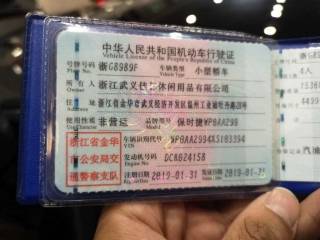 中华人民共和国机动车行驶证
Vehicle License of the People's Republic of China
号牌号码 浙G8989F 车辆类型 小型轿车
Plate No. Vehicle Type
所有人 浙江武义 休闲用品有限公司
Owner
住址 浙江省金华市武义经济开发区温州工业城牡丹路
Address
使用性质 非营运 品牌型号 保时捷WPBAA299
Use Character Model
浙江省金华 车辆识别代号
VIN
市公安局交 发动机号码 DCA024158
Engine No.
通警察支队 注册日期 2019-01-31 发证日期 2019-01-31
Register Date Issue Date